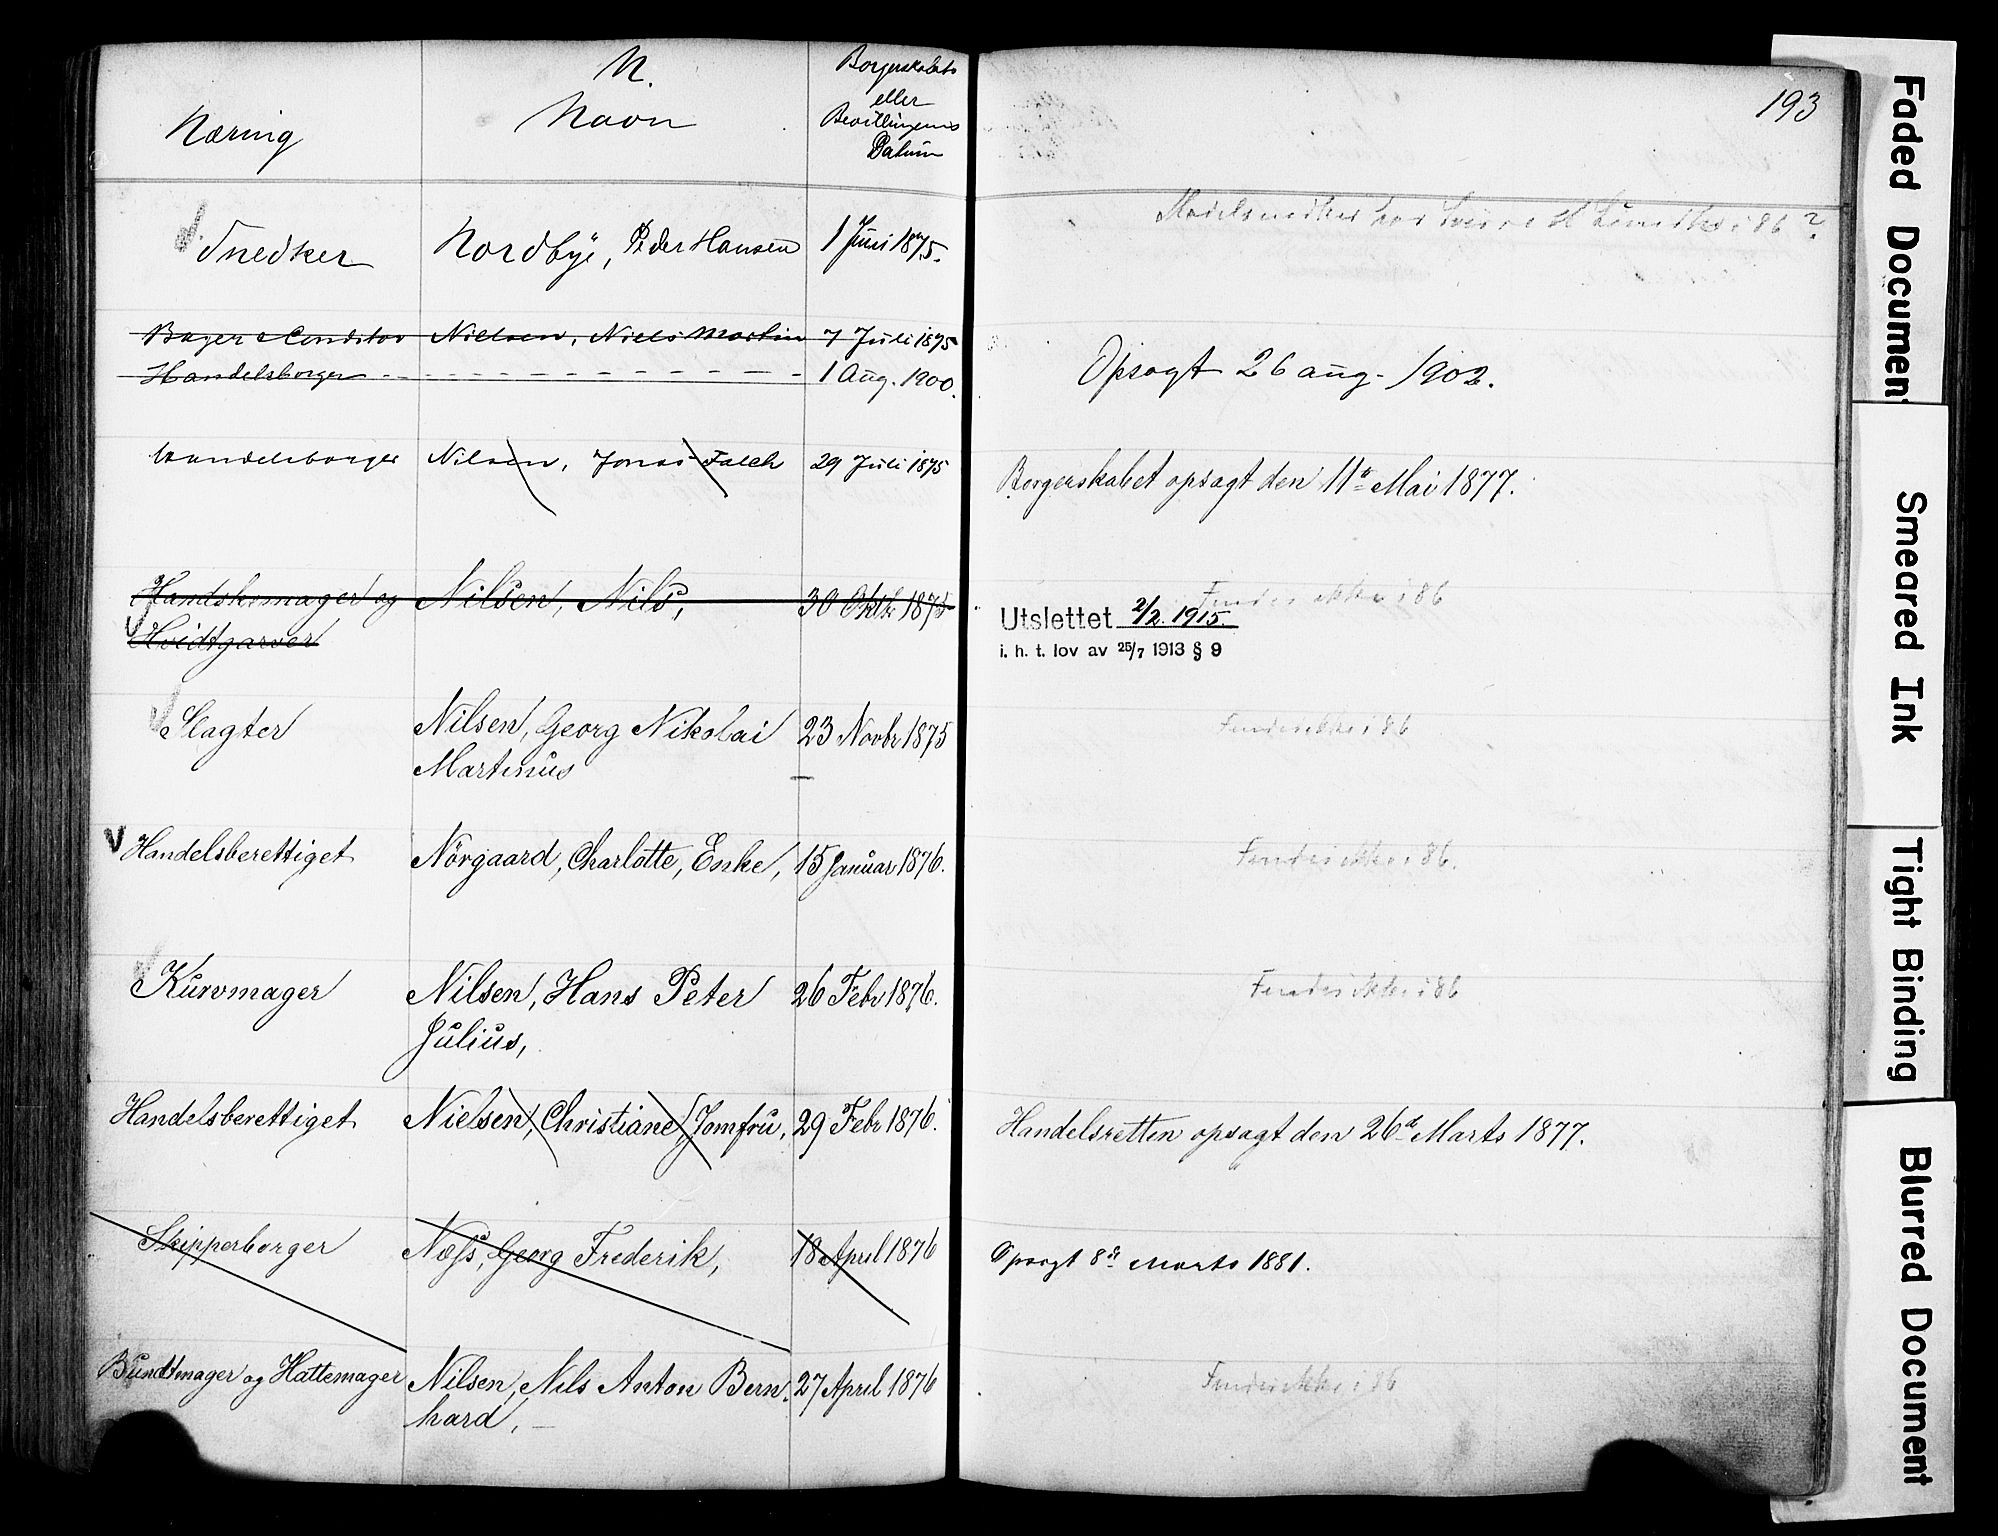 N.
Næring
Navn
Borgerskabets
eller
Bevillingens
Datum
193
Snedker Nordbye, Peder Hansen 1 Juni 1875.
i 86 ?
Bager & Conditor Nielsen, Niels Martin 7 Juli 1875
Handelsborger - - - - - - - - - - - 1 Aug. 1900.
Opsagt 26 aug. 1902.
Handelsborger Nilsen, Jonas Falch 29 Juli 1875
Borgerskabet opsagt den 11te Mai 1877.
Handskemager og Nilsen, Nils, 30 Oktbr 1875
Hvidtgarver
Findes ikke i 86
Utslettet 2/2. 1915.
i. h. t. lov av 25/7 1913 § 9
Slagter Nilsen, Georg Nikolai 23 Novbr 1875
Martinus
Findes ikke i 86
Handelsberettiget Nörgaard, Charlotte, Enke, 15 Januar 1876.
Findes ikke i 86.
Kurvmager Nilsen, Hans Peter 26 Febr 1876.
Julius,
Findes ikke i 86
Handelsberettiget Nielsen, Christiane, Jomfru, 29 Febr 1876.
Handelsretten opsagt den 26de Marts 1877.
Skipperborger Næss, Georg Frederik, 18 April 1876
Opsagt 8de Marts 1881.
Bundtmager og Hattemager Nilsen, Nils Anton Bern- 27 April 1876
hard, —
Findes ikke i 86
Faded Document
Smeared Ink
Tight Binding
Blurred Document